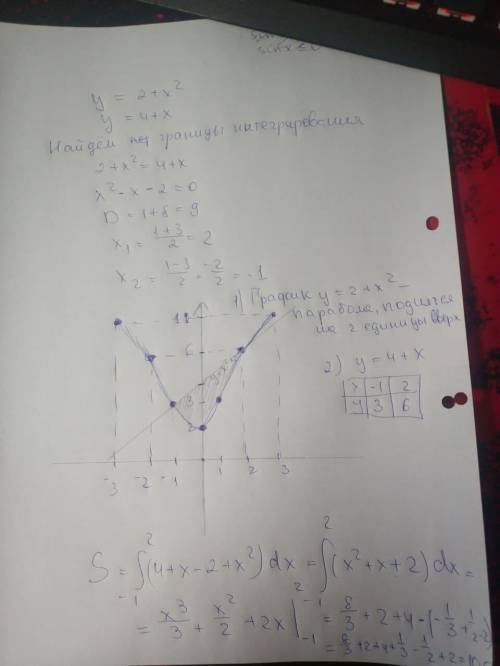 y = 2+x²
y = 4+x
Найдём границы интегрирования
2+x²=4+x
x²-x-2=0
D=1+8=9
x₁ = (1+3)/2 = 2
x₂ = (1-3)/2 = -2/2 = -1
1) График y=2+x² –
парабола, поднятая
на 2 единицы вверх
2) y=4+x
x -1 2
y 3 6
11
6
3
-3 -2 -1 1 2 3
S = ∫₋₁² (4+x-2+x²)dx = ∫₋₁² (x²+x+2)dx =
= x³/3 + x²/2 + 2x |₋₁² = 8/3+2+4-(-1/3+1/2-2)
= 8/3+2+4+1/3-1/2+2=